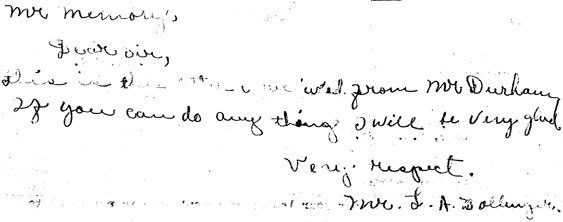 Mr Memory,
Dear Sir,
this is the from Mr Durham
If you can do any thing I will be very glad
Very respect.
Mr. L. A. Dollinger.